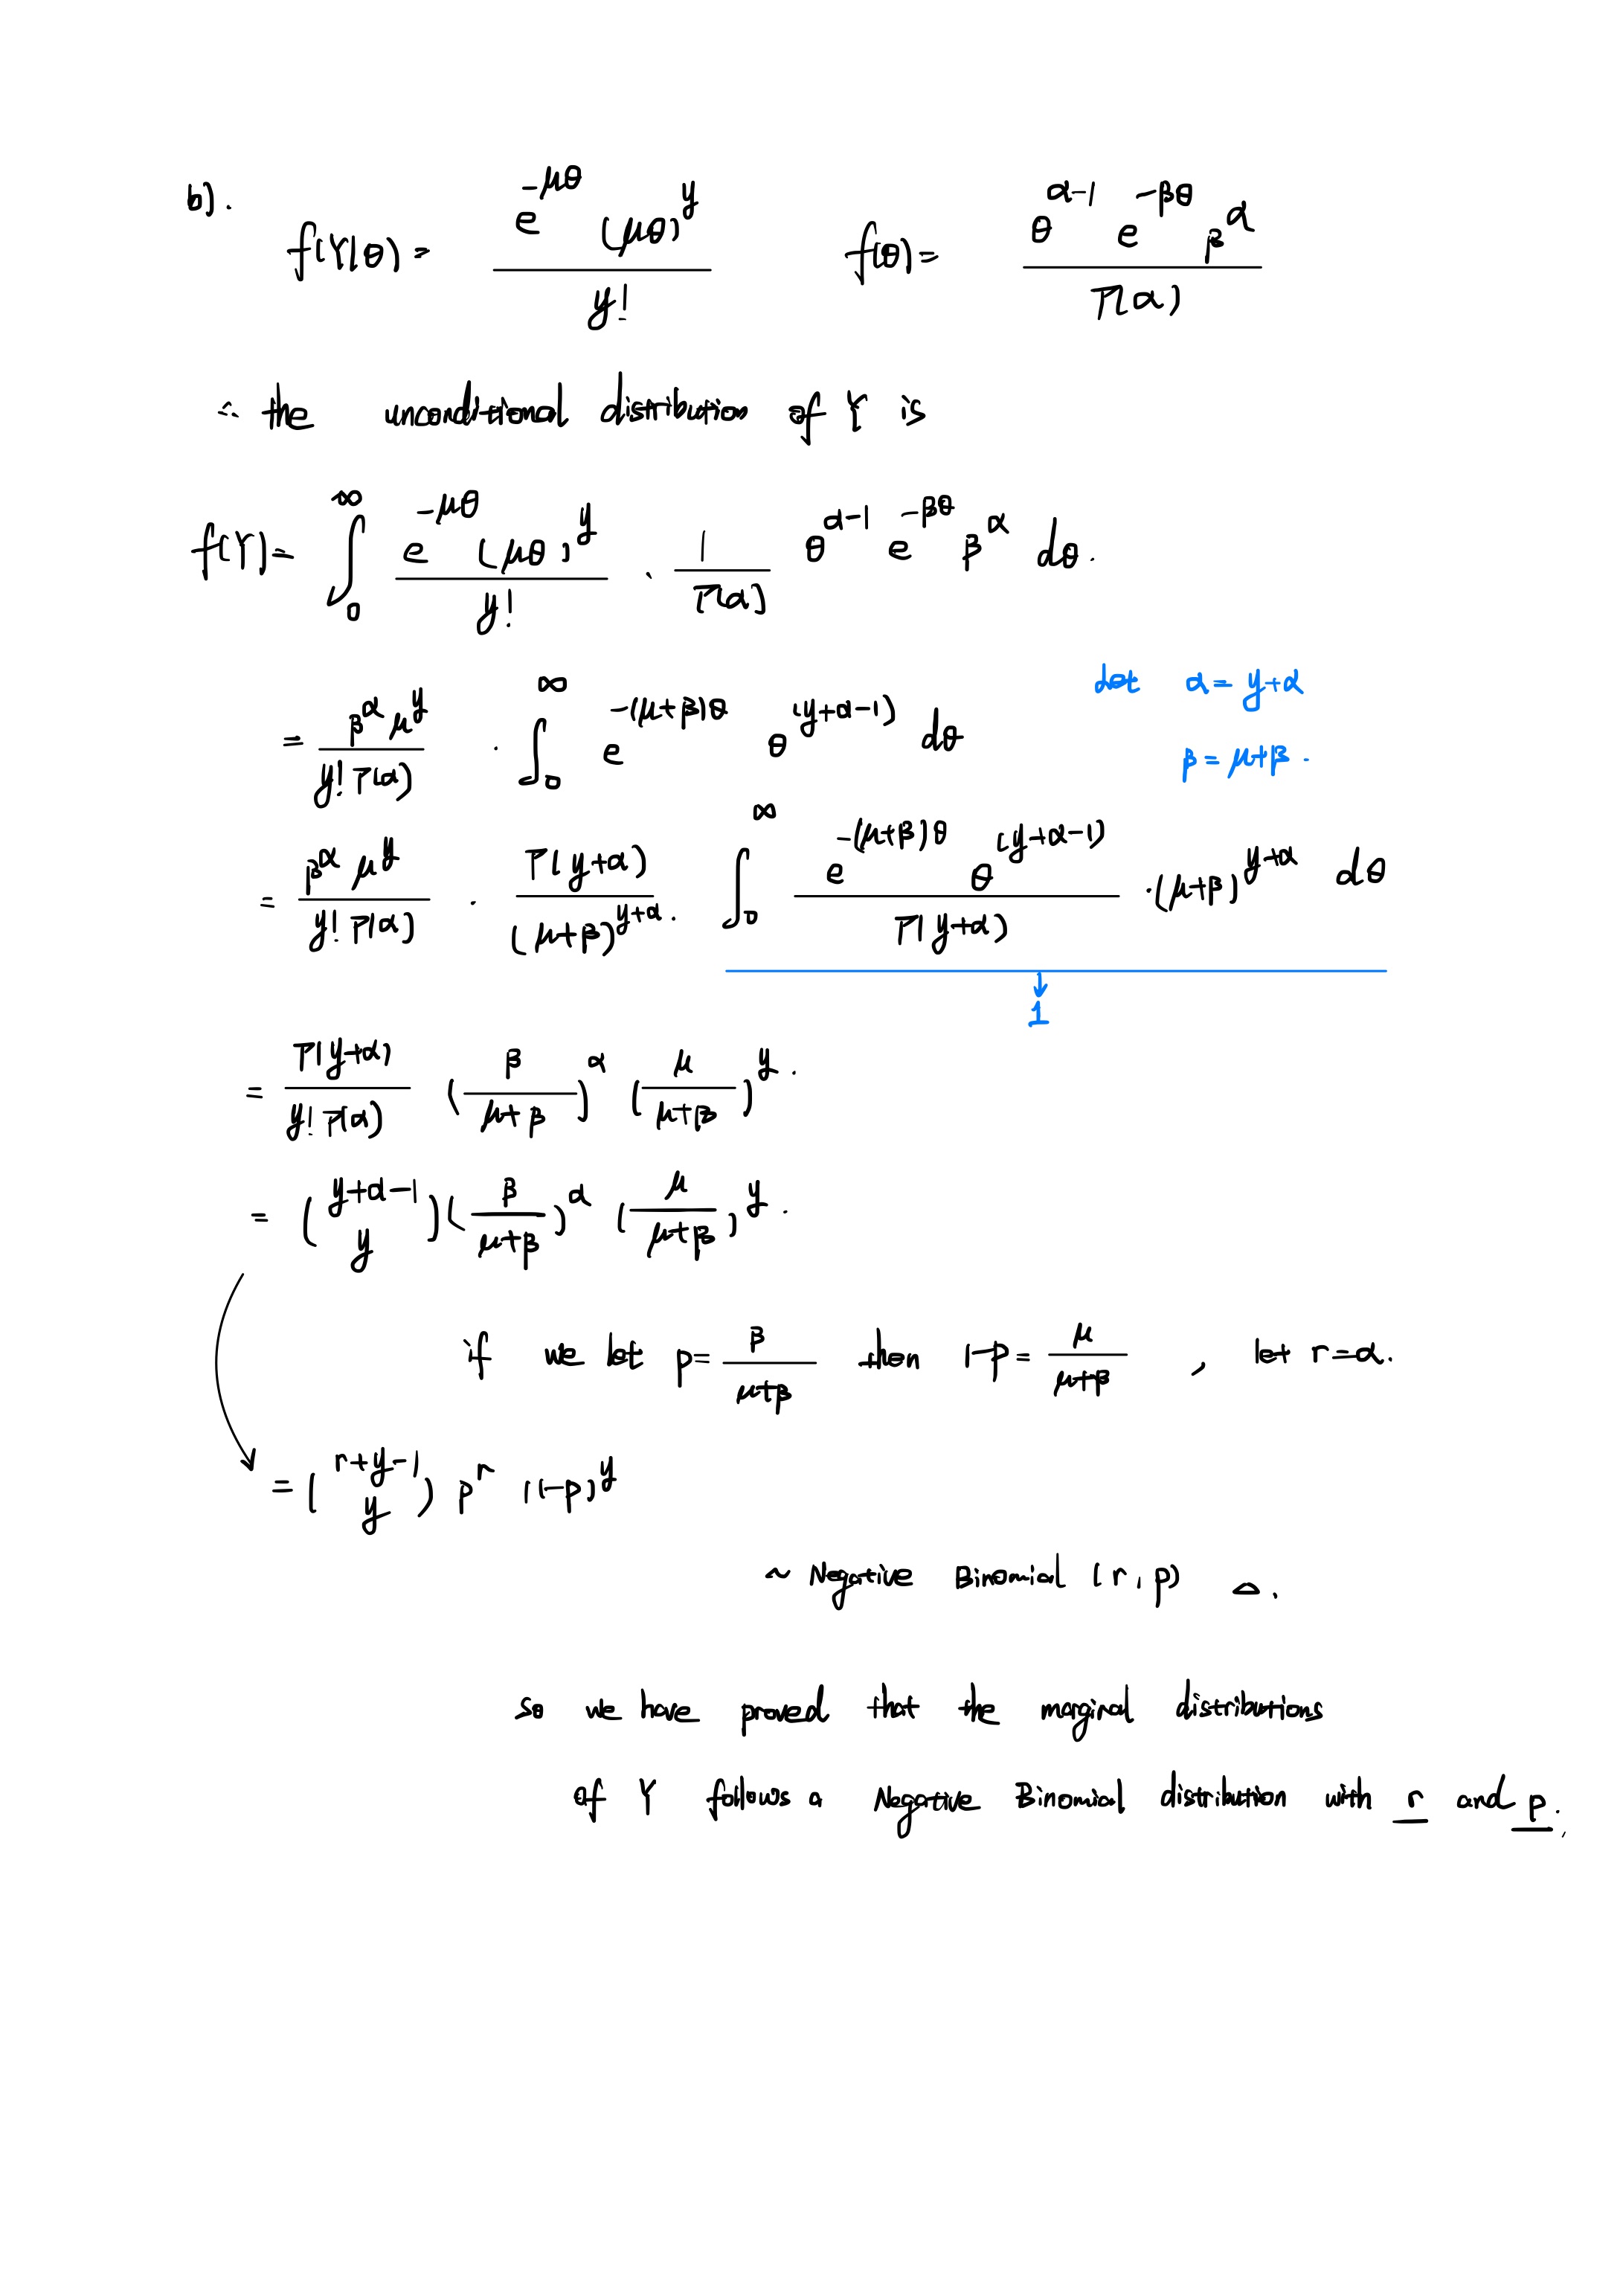 b).
f(Y|θ) = e^{-μθ} (μθ)^y / y!    f(θ) = θ^{α-1} e^{-βθ} β^α / Γ(α)
∴ the unconditional distribution of Y is
f(Y) = ∫_0^∞ e^{-μθ} (μθ)^y / y! · 1/Γ(α) θ^{α-1} e^{-βθ} β^α dθ.
= β^α μ^y / y! Γ(α) · ∫_0^∞ e^{-(μ+β)θ} θ^{(y+α-1)} dθ    let α = y+α
β = μ+β.
= β^α μ^y / y! Γ(α) · Γ(y+α) / (μ+β)^{y+α} · ∫_0^∞ e^{-(μ+β)θ} θ^{(y+α-1)} / Γ(y+α) · (μ+β)^{y+α} dθ
↓
1
= Γ(y+α) / y! Γ(α) (β / μ+β)^α (μ / μ+β)^y.
= (y+α-1 y) (β / μ+β)^α (μ / μ+β)^y.
if we let p = β / μ+β then 1-p = μ / μ+β , let r=α.
= (r+y-1 y) p^r (1-p)^y
~ Negative Binomial (r, p) △.
so we have proved that the marginal distributions
of Y follows a Negative Binomial distribution with r and p.